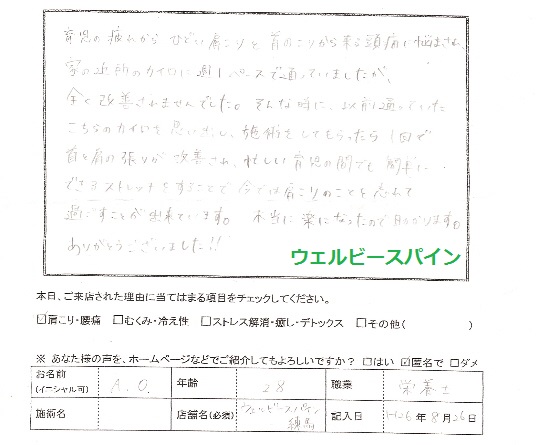 育児の疲れから ひどい肩こりと 首のこりから来る頭痛に悩まされ、
家の近所のカイロに週1ペースで通っていましたが、
全く改善されませんでした。そんな時に、以前通っていた
こちらのカイロを思い出し、施術をしてもらったら1回で
首と肩の張りが改善され、忙しい育児の間でも簡単に
できるストレッチをすることで今では肩こりのことを忘れて
過ごすことが出来ています。本当に楽になったので助かります。
ありがとうございました!!
ウェルビースパイン
本日、ご来店された理由に当てはまる項目をチェックしてください。
☑肩こり・腰痛 □むくみ・冷え性 □ストレス解消・癒し・デトックス □その他( )
※ あなた様の声を、ホームページなどでご紹介してもよろしいですか? □はい ☑匿名で □ダメ
お名前(イニシャル可) A.O. 年齢 28 職業 栄養士
施術名 店舗名(必須) ウェルビースパイン練馬 記入日 H26年8月26日